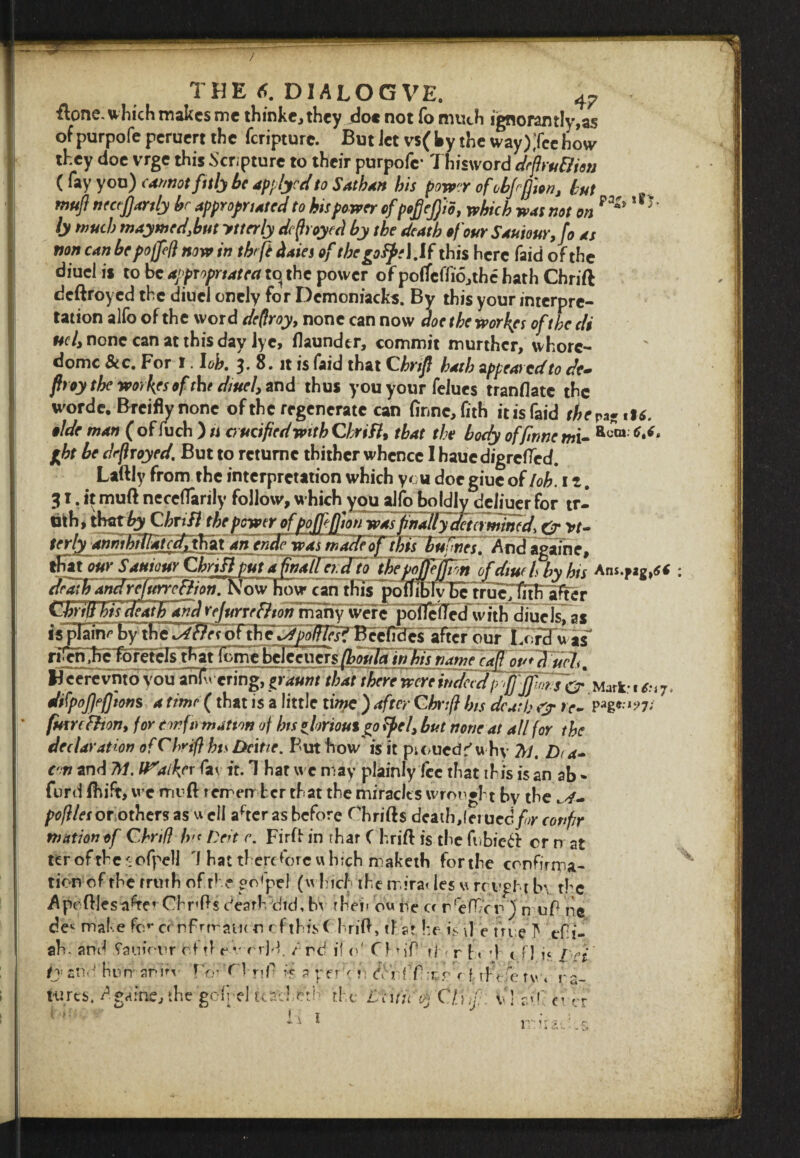 THE 6. DIALOGVE. 47
ſtone. which makes me thinke, they doe not ſo much ignorantly, as
of purpoſe peruert the ſcripture. But let vs (by the way) ſee how
they doe vrge this Scripture to their purpoſe· This word deſtruction
( ſay you) cannot fitly be applyed to Sathan his power of obſeſſion, but
muſt neceſſarily be appropriated to his power of poſſeſſiō, which was not on
ly much maymed, but vtterly deſtroyed by the death of our Sauiour, ſo as
non can be poſſeſt now in theſe daies of the goſpel. If this here ſaid of the
diuel is to be appropriatea to the power of poſſeſſiō, thē hath Chriſt
deſtroyed the diuel onely for Demoniacks. By this your interpre-
tation alſo of the word deſtroy, none can now doe the workes of the di
uel, none can at this day lye, ſlaunder, commit murther, whore-
dome &c. For 1. Ioh. 3. 8. it is ſaid that Chriſt hath appeared to de-
ſtroy the workes of the diuel, and thus you your ſelues tranſlate the
worde. Breifly none of the regenerate can ſinne, ſith it is ſaid the pag 116.
olde man ( of ſuch ) is crucified with Chriſt, that the body of ſinne mi- Rom: 6,6.
ght be deſtroyed. But to returne thither whence I haue digreſſed.
Laſtly from the interpretation which you doe giue of Ioh. 12.
31. it muſt neceſſarily follow, which you alſo boldly deliuer for tr-
uth, that by Chriſt the power of poſſeſſion was finally determined, & vt-
terly annihillated, that an ende was made of this buſines. And againe,
that our Sauiour Chriſt put a finall end to the poſſeſſion of diuels by his Ans. pag, 66 :
death and reſurrection. Now how can this poſſibly be true, ſith after
Chriſt his death and reſurrection many were poſſeſſed with diuels, as
is plaine by the Actes of the Apoſtles? Beeſides after our Lord was
riſen, he foretels that ſome beleeuers ſhoula in his name caſt out diuels.
Heerevnto you anſwering, graunt that there were indeed poſſeſſions & Mark: 16:17.
diſpoſſeſſions a time ( that is a little time ) after Chriſt his death & re- page: 197:
ſurrection, for confirmation of his glorious goſpel, but none at all for the
declaration of Chriſt his Deitie. But how is it prouedꝭ why M. Dea-
con and M. Walker ſay it. That we may plainly ſee that this is an ab-
ſurd ſhift, we muſt remember that the miracles wrought by the A-
poſtles or others as well after as before Chriſts death, ſerued for confir
mation of Chriſt his Deitie. Firſt in that Chriſt is the ſubiect or mat
ter of the goſpell That therefore which maketh for the confirma-
tion of the truth of the goſpel (which the miracles wrought by the
Apoſtles after Chriſts death did, by their owne confeſſion) muſt ne
des make for confirmation of this Chriſt, that he is the true Meſſi-
ah. and Sauiour of the world. And if of Chriſt then that he is Dei